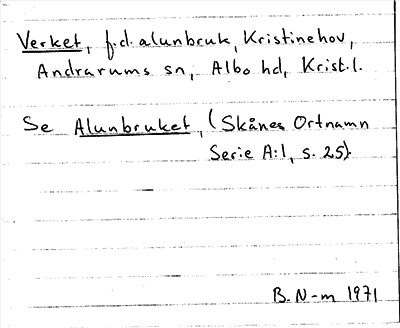 Verket, f.d. alunbruk, Kristinehov,
Andrarums sn, Albo hd, Krist.l.
Se Alunbruket, (Skånes Ortnamn
Serie A:1, s. 25).
B. N-m 1971